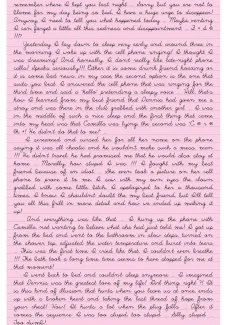 remember where I left you last night .. Sorry but you are not to
blame for my day being so bad, I have a huge urge to disappear!
Anyway, I need to tell you what happened today .. Maybe writing
I can forget a little all this sadness and disappointment ..
!!!
Yesterday I lay down to sleep very early and around three in
the morning I woke up with the cell phone ringing! I thought I
was dreaming! And normally, I don't really like late-night phone
calls! Seeks security! Either it is some drunk friend hanging or
it is some bad news, in my case the second option is the one that
suits you best. I answered the cell phone that was ringing for the
third time and said a "hello" pretending a sleepy voice .. Well, that's
how I learned from my best friend that Dennis had gone on a
and was there in the club grabbed with another girl .. I was
in the middle of such a nice sleep and the first thing that came
into my head was that Camilla was lying the second was
oh =( He didn't do that to me? ..
I screamed and cursed her for all her name on the phone
saying it was all absurd and he wouldn't make such a mess. mom
!!! He didn't need, he had promised me that he would also stay at
home .... Mentally how stupid I was !!! I fought with my best
friend because of an idiot .. she even took a picture on her cell
phone to prove it to me. I saw with my own eyes the clown
grabbed with some little bitch. I apologized to her a thousand
times, I know I shouldn't doubt the my best friend but I'll tell
you all this full in more detail and how we ended up making it
up!
And everything was like that .. I hung up the phone with
Camilla, not wanting to believe what she had just told me! I got up
from the bed and went to the bathroom in slow steps, turned on
the shower tap, adjusted the water temperature and burst into tears
.. Was was the first time I cried like that, I couldn't even breathe
!!! The bath took a long time, time seems to have stopped for me at
that moment!
I went back to bed and couldn't sleep anymore .. I imagined
that Dennis was the greatest love of my life! And things right !!! It
is this kind of illusion that hurts when you leave us at once ends
up with a broken heart and taking the last thread of hope from
your chest! Now! It hurts a lot when the plug falls .... After it
comes the sequence: I was too stupid, too stupid .. Silly, stupid ..
Too dumb!